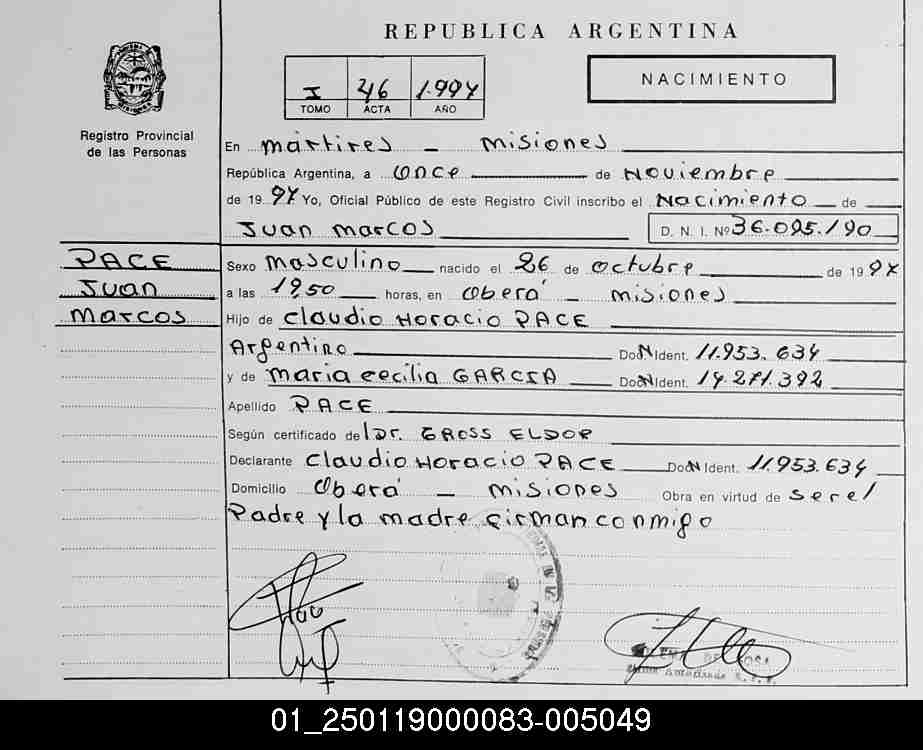 REPUBLICA ARGENTINA
I 46 1.994
TOMO ACTA AÑO
NACIMIENTO
Registro Provincial
de las Personas
En mártires - misiones
República Argentina, a once de Noviembre
de 1994 Yo, Oficial Público de este Registro Civil inscribo el Nacimiento de
Juan Marcos D. N. I. Nº 36.095.190
PACE
Juan
Marcos
Sexo masculino nacido el 26 de octubre de 1994
a las 19,50 horas, en Oberá - misiones
Hijo de Claudio Horacio PACE
Argentino Doc. Ident. 11.953.634
y de María Cecilia GARCIA Doc. Ident. 14.271.392
Apellido PACE
Según certificado de l Dr. GROSS ELDOR
Declarante Claudio Horacio PACE Doc. Ident. 11.953.634
Domicilio Oberá - misiones Obra en virtud de ser el
Padre y la madre firman conmigo
01_250119000083-005049